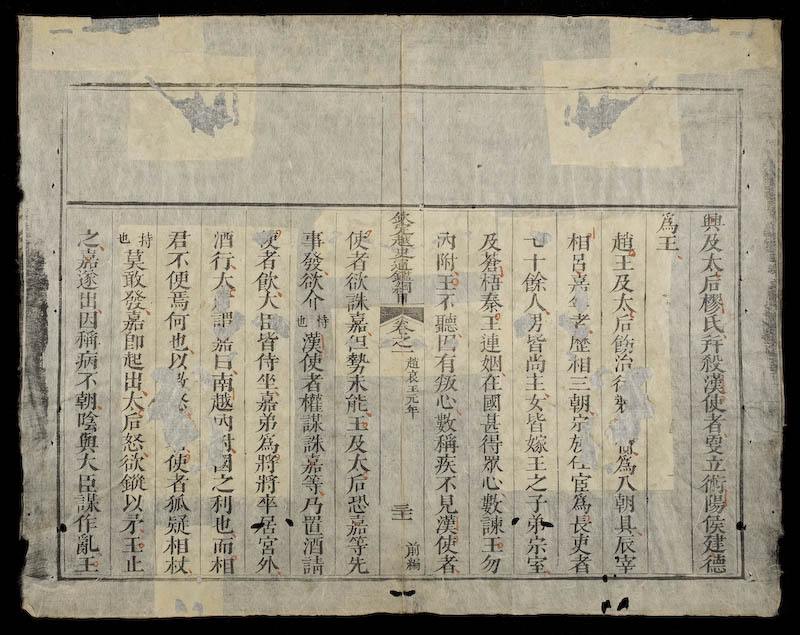 興及太后樛氏并殺漢使者更立術陽侯建德
爲王
趙王及太后飭治行裝爲入朝具辰宰
相呂嘉年老歷相三朝宗族仕宦爲長吏者
七十餘人男皆尚主女皆嫁王之子弟宗室
及蒼梧秦王連姻在國甚得眾心數諫王勿
內附王不聽因有叛心數稱疾不見漢使者
欽定越史通鑑綱目 卷之一 趙哀王元年 前編
使者欲誅嘉但勢未能王及太后恐嘉等先
事發欲介恃也漢使者權謀誅嘉等乃置酒請
使者飲大臣皆侍坐嘉弟爲將將卒居宮外
酒行太后謂嘉曰南越內附國之利也而相
君不便焉何也以激怒使者狐疑相杖
持也莫敢發嘉即起出太后怒欲鏦以矛王止
之嘉遂出因稱病不朝陰與大臣謀作亂王